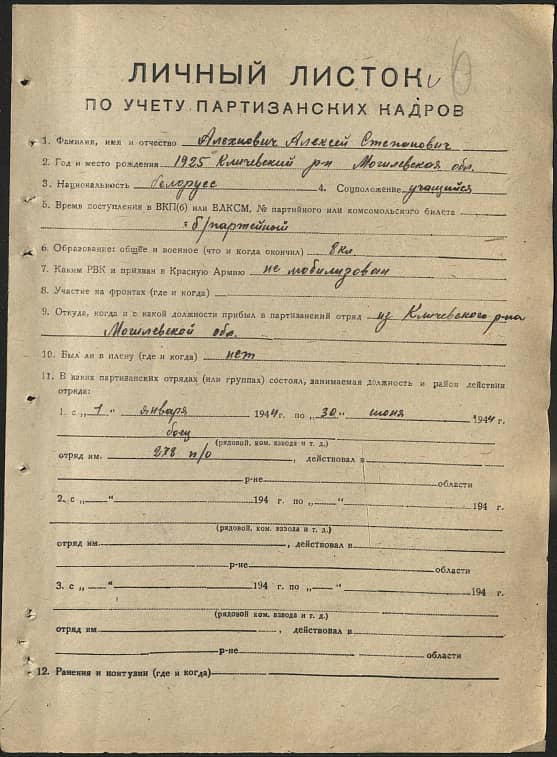 ЛИЧНЫЙ ЛИСТОК
ПО УЧЕТУ ПАРТИЗАНСКИХ КАДРОВ
1. Фамилия, имя и отчество Алехнович Алексей Степанович
2. Год и место рождения 1925 Кличевский р-н Могилевская обл.
3. Национальность белорусс 4. Соцположение учащийся
5. Время поступления в ВКП(б) или ВЛКСМ, № партийного или комсомольского билета
б/партейный
6. Образование: общее и военное (что и когда окончил) 8 кл
7. Каким РВК и призван в Красную Армию не мобилизован
8. Участие на фронтах (где и когда)
9. Откуда, когда и с какой должности прибыл в партизанский отряд из Кличевского р-на
Могилевской обл.
10. Был ли в плену (где и когда) нет
11. В каких партизанских отрядах (или группах) состоял, занимаемая должность и район действия
отряда:
1. с „1“ января 1944 г. по „30“ июня 1944 г.
боец
(рядовой, ком. взвода и т. д.)
отряд им. 278 п/о, действовал в
р-не области
2. с „ “ 194 г. по „ “ 194 г.
(рядовой, ком. взвода и т. д.)
отряд им. , действовал в
р-не области
3. с „ “ 194 г. по „ “ 194 г.
(рядовой, ком. взвода и т. д.)
отряд им. , действовал в
р-не области
12. Ранения и контузии (где и когда)